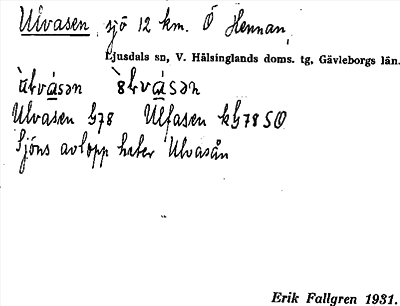 Ulvasen, sjö 12 km. Ö Hennan,
Ljusdals sn, V. Hälsinglands doms. tg, Gävleborgs län.
Ulvasen G78 Ulfasen kG78SO
Sjöns avlopp heter Ulvasån
Erik Fallgren 1931.